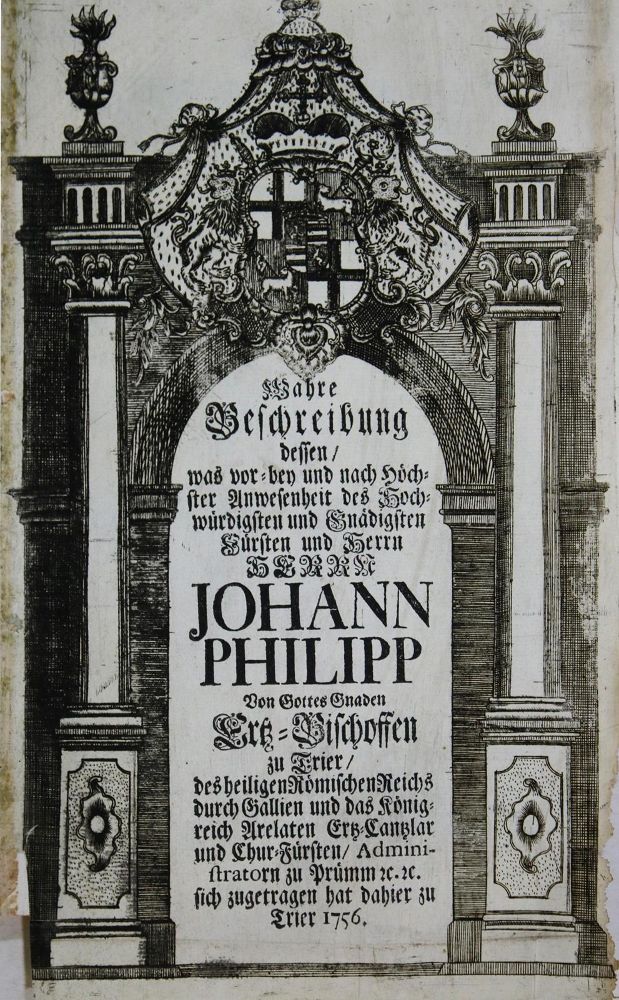 Wahre
Beschreibung
dessen/
was vor-bey und nach Höch-
ster Anwesenheit des Hoch-
würdigsten und Gnädigsten
Fürsten und Herrn
HERRN
JOHANN
PHILIPP
Von Gottes Gnaden
Ertz-Bischoffen
zu Trier/
des heiligen Römischen Reichs
durch Gallien und das König-
reich Arelaten Ertz-Cantzlar
und Chur-Fürsten/ Admini-
stratorn zu Prümm ꝛc. ꝛc.
sich zugetragen hat dahier zu
Trier 1756.